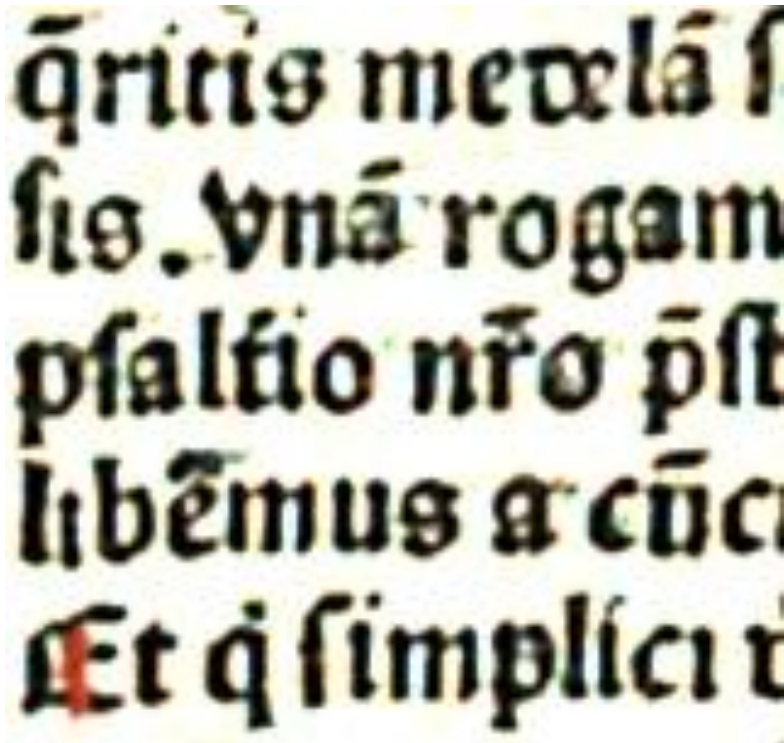 q̄ritis medelā
ſis. Vnā rogam
pſalt́io nr̄o p̄ſt
libēmus a cūc
Et q̇ ſimplici